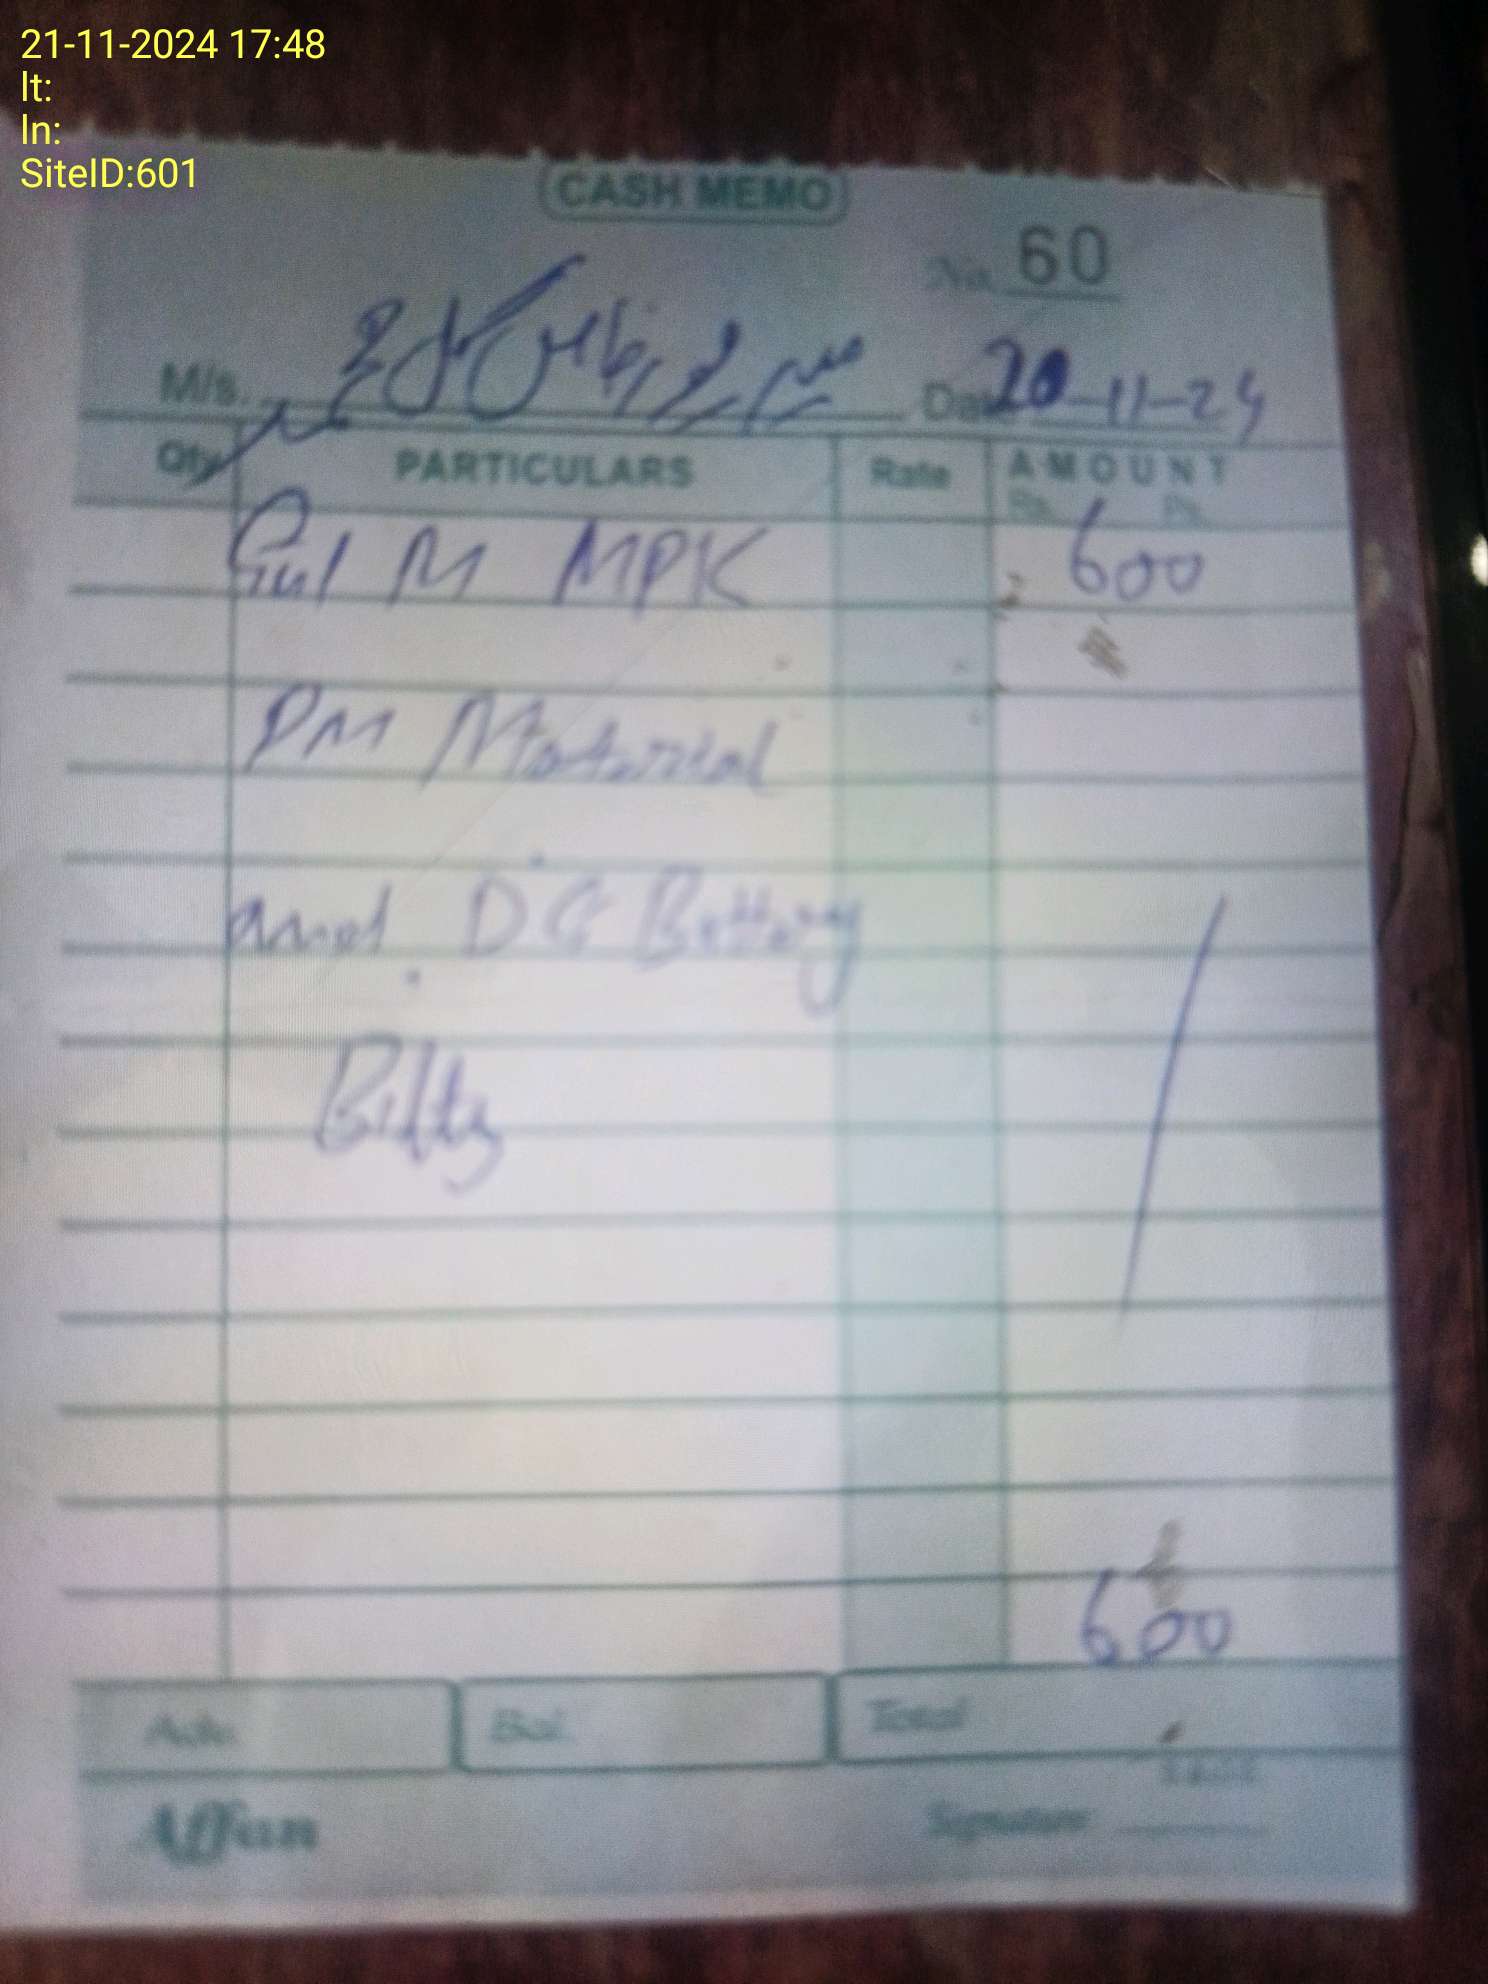 21-11-2024 17:48
lt:
ln:
SiteID:601
CASH MEMO
No. 60
M/s. Date 20-11-24
Qty PARTICULARS Rate AMOUNT
Rs. Ps.
Gul M MPK 600
PM Material
and DG Battery
Bilty
600
Adv. Bal. Total
Signature
Affan